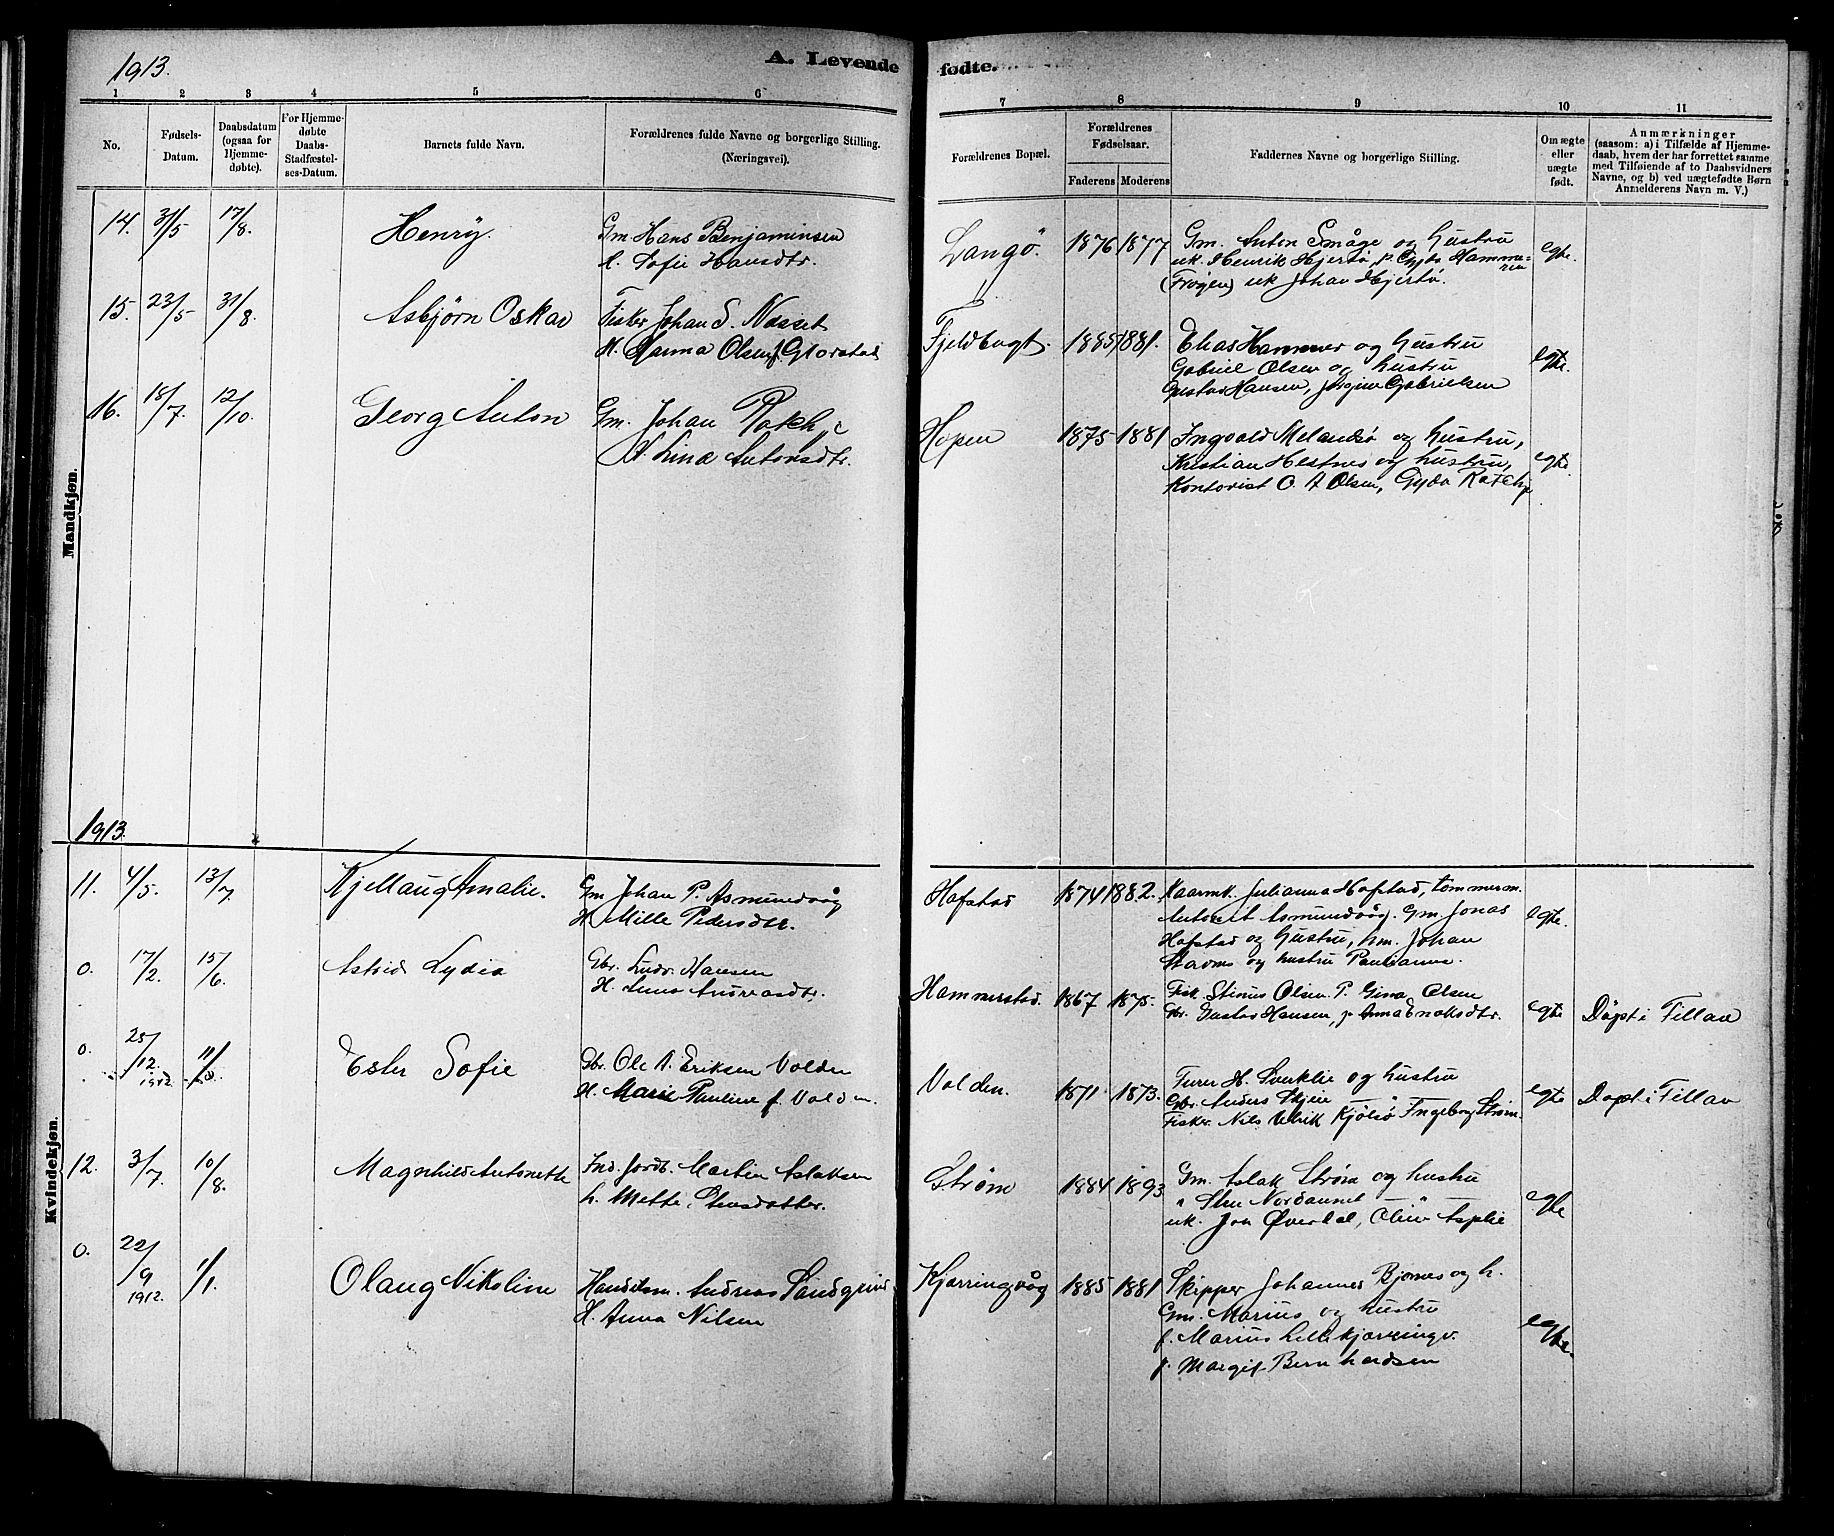 1913.
A. Levende fødte.
1 2 3 4 5 6 7 8 9 10 11
No.
Fødsels-
Datum.
Daabsdatum
(ogsaa for
Hjemme-
døbte).
For Hjemme-
døbte
Daabs-
Stadfæstel-
ses-Datum.
Barnets fulde Navn.
Forældrenes fulde Navne og borgerlige Stilling.
(Næringsvei).
Forældrenes Bopæl.
Forældrenes
Fødselsaar.
Faderens Moderens
Faddernes Navne og borgerlige Stilling.
Om ægte
eller
uægte
født.
Anmærkninger
(saasom: a) i Tilfælde af Hjemme-
daab, hvem der har forrettet samme
med Tilføiende af to Daabsvidners
Navne, og b) ved uægtefødte Børn
Anmelderens Navn m. V.)
Mandkjøn.
14. 31/5 17/8. Henry. Gm Hans Benjaminsen
H. Sofie Hansdtr.
Langö. 1876 1877 Gm. Anton Småge og hustru
uk. Henrik Hjertø, p. Gyda Hamme-
(Frøyen) uk Johan Hjertø.
egte.
15. 23/5 31/8. Asbjørn Oskar Fisker Johan S. Nesset
H. Marna Olsen f. Glorstad
Fjeldbugt. 1885 1881. Elias Hammer og hustru
Gabriel Olsen og hustru
Gustav Hansen, Jørgine Gabrielsen
egte.
16. 18/7. 12/10. Georg Anton Gm. Johan Rokh
H. Lina Antonsdtr.
Hopen 1875 1881 Ingvald Melandsø og hustru,
Kristian Hestnes og hustru,
Kontorist O. A Olsen, Gyda
egte.
Kvindekjøn.
1913.
11. 4/5. 13/7. Kjellaug Amalie. Gm Johan P. Asmundvåg
H. Mille Pedersdtr.
Hofstad 1874 1882. Kaarmk. Julianna Hofstad, tømmerm.
Anton Asmundvåg. Gm Jonas
Hofstad og hustru, hm. Johan
Stavnes og hustru Paulianna.
egte.
0. 17/2. 15/6. Astrid Lydia Gbr. Ludv. Hansen
H. Anna Andreasdtr.
Hammerstad. 1867 1875. Fisk. Stinus Olsen. P. Gina Olsen
Gbr. Gustav Hansen, p. Anna Enoksdtr.
egte Döpt i Fillan
0. 25/12. 1912. Ester Sofie Gbr. Ole A. Eriksen Volden
H. Marie Pauline f. Volden.
Volden. 1871. 1873. Turer H. Sverklie og hustru
Gbr. Anders Skjeie — " —
Fisker Nils Ulrik Kjölsø Ingeborg Strøm.
egte Döpt i Fillan
12. 3/7. 10/8. Magnhild Antonette Ind. Jordb. Martin Aslaksen
h. Mette
Strøm 1884 1893 Gm. Aslak Strøm og hustru
" Sten Nordammel — " —
uk. Jon Øverdal, Oline Asplie
egte
0. 22/9 1912. 1/1. Olaug Nikoline Handelsm. Andreas Sandgrind
H. Anna Nilsen
Kjørringvåg 1885 1881 Skipper Johannes Bjørnes og h.
Gm. Marius og hustru
f. Marius Lillekjørringv.
p. Margit Bernhardsen
egte.